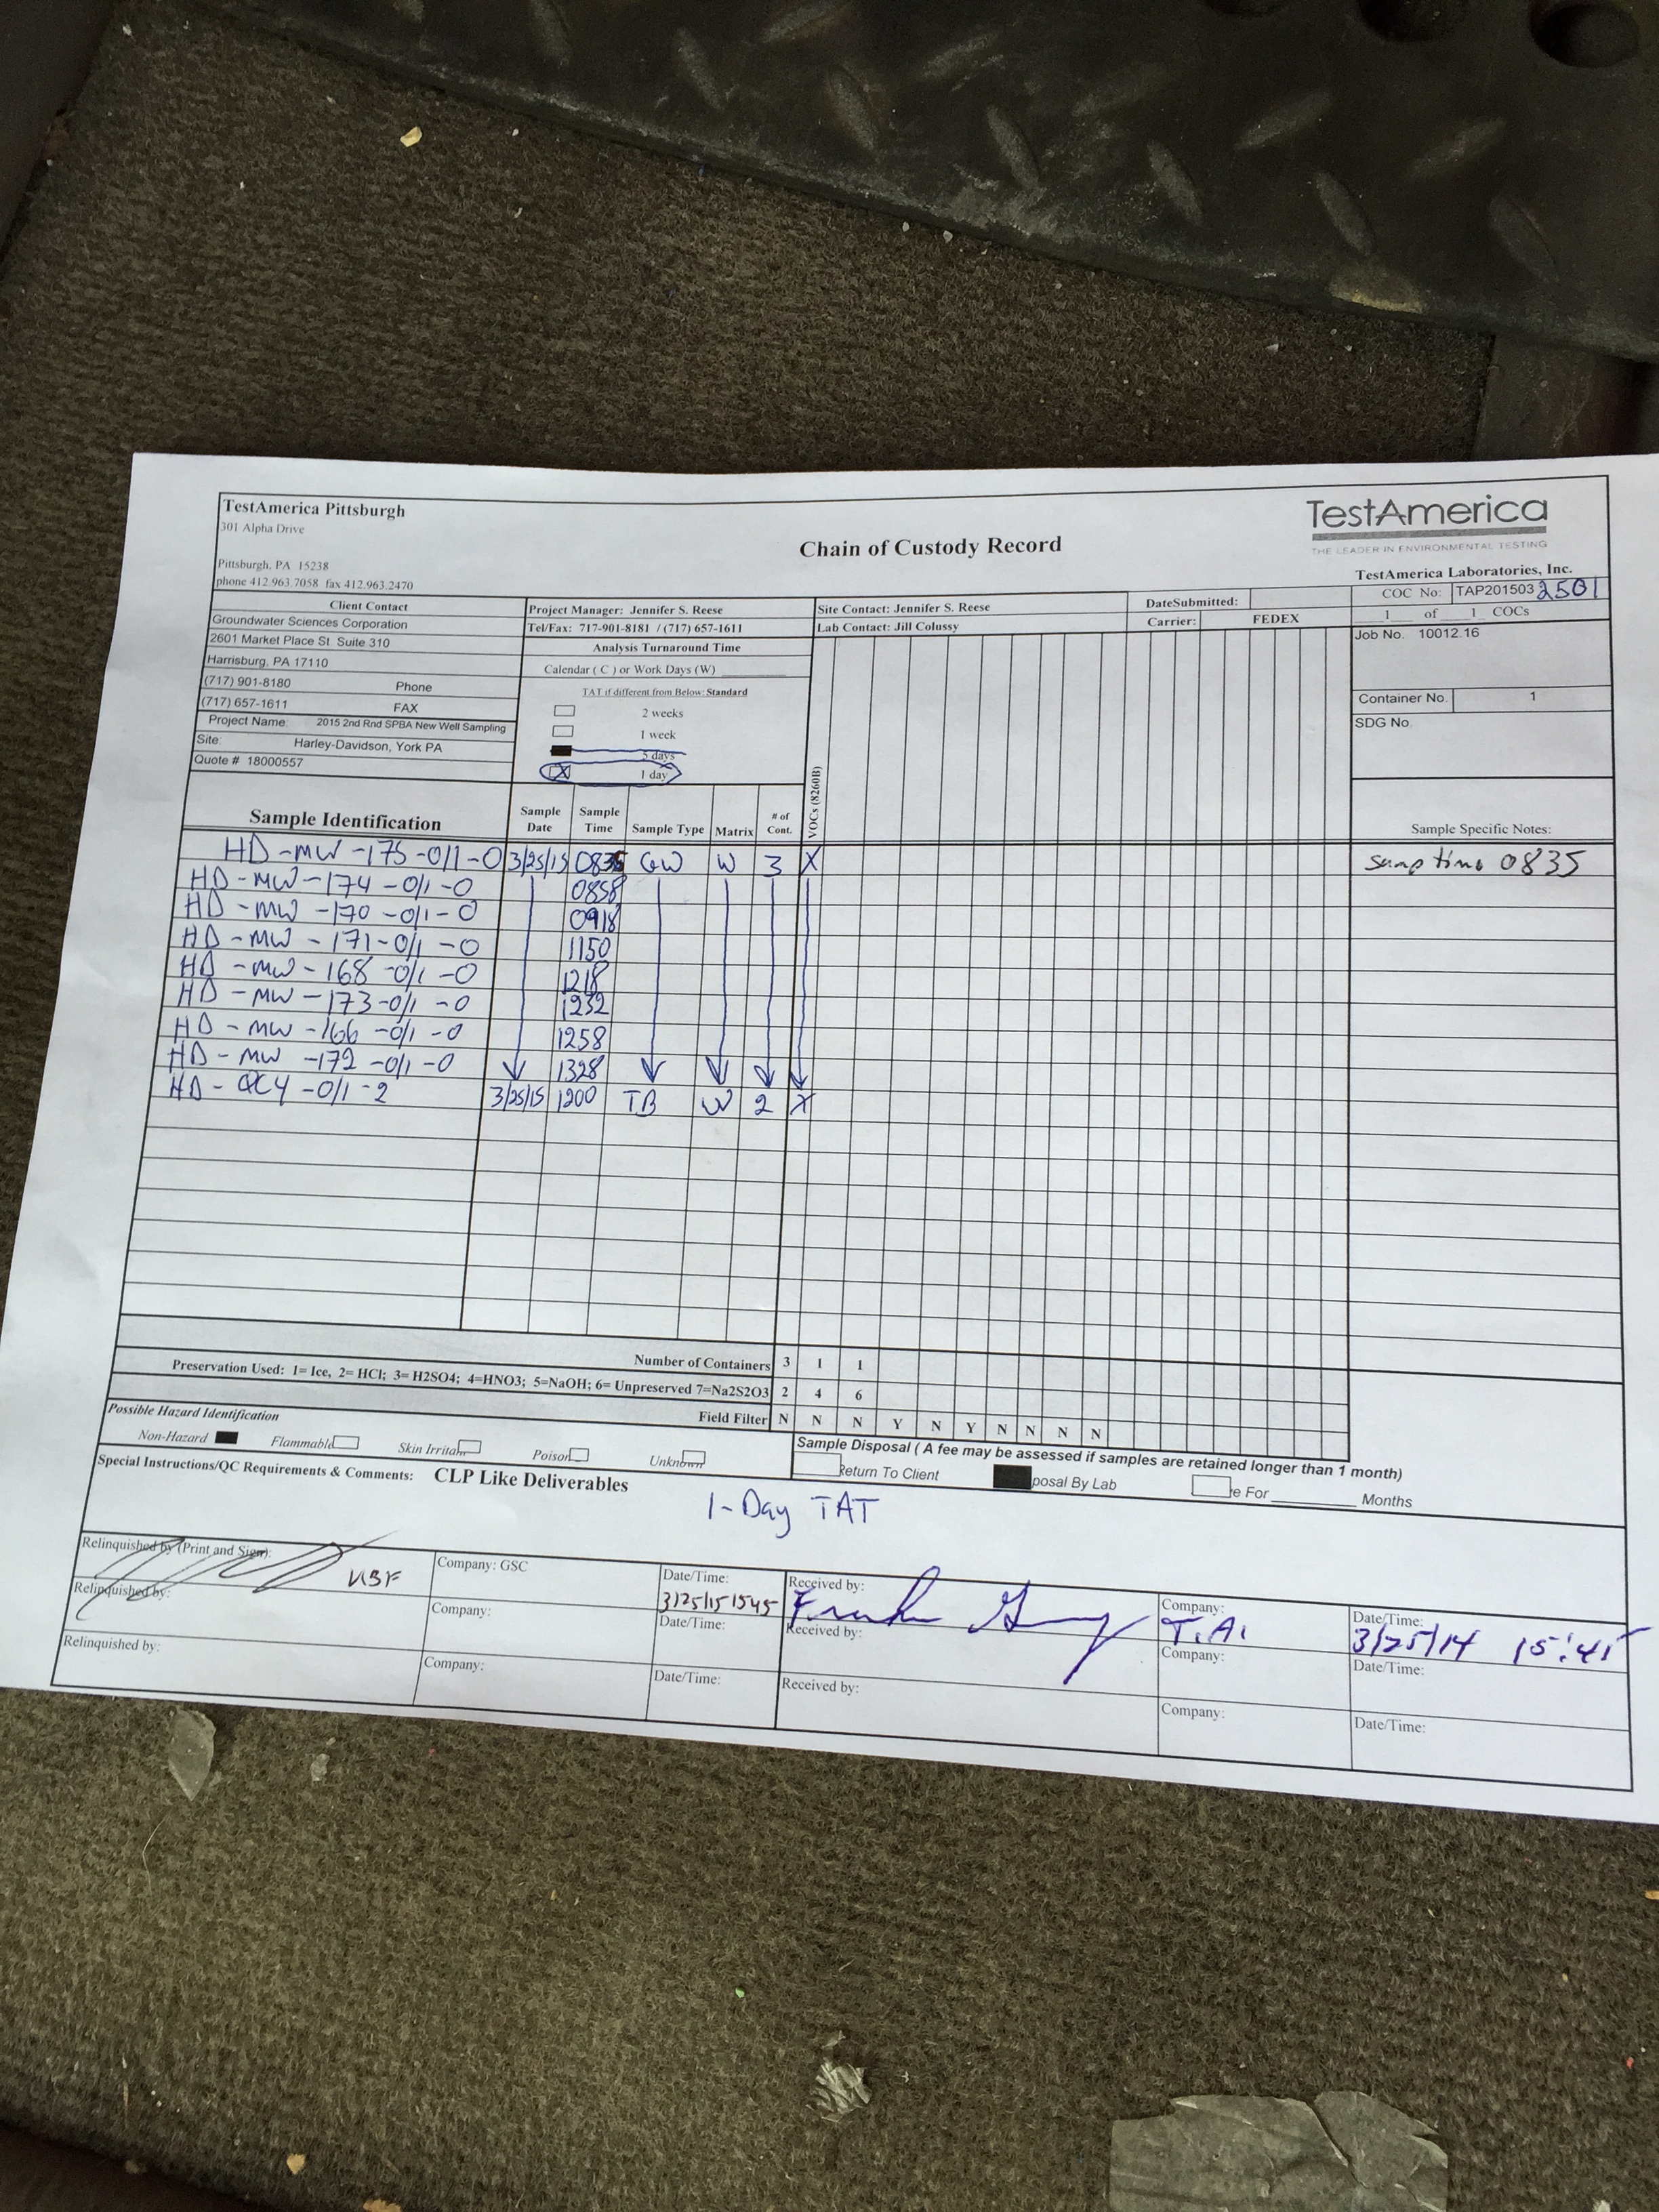 TestAmerica Pittsburgh
301 Alpha Drive
Pittsburgh, PA 15238
phone 412.963.7058 fax 412.963.2470
Chain of Custody Record
TestAmerica
THE LEADER IN ENVIRONMENTAL TESTING
TestAmerica Laboratories, Inc.
Client Contact
Groundwater Sciences Corporation
2601 Market Place St. Suite 310
Harrisburg, PA 17110
(717) 901-8180 Phone
(717) 657-1611 FAX
Project Name: 2015 2nd Rnd SPBA New Well Sampling
Site: Harley-Davidson, York PA
Quote # 18000557
Project Manager: Jennifer S. Reese
Tel/Fax: 717-901-8181 / (717) 657-1611
Analysis Turnaround Time
Calendar ( C ) or Work Days (W)
TAT if different from Below: Standard
2 weeks
1 week
5 days
X 1 day
Site Contact: Jennifer S. Reese
Lab Contact: Jill Colussy
DateSubmitted:
Carrier: FEDEX
COC No: TAP201503 2501
1 of 1 COCs
Job No. 10012.16
Container No. 1
SDG No.
Sample Identification Sample Date Sample Time Sample Type Matrix # of Cont. VOCs (8260B) Sample Specific Notes:
HD-MW-175-0/1-0 3/25/15 0835 GW W 3 X samp time 0835
HD-MW-174-0/1-0 0858
HD-MW-170-0/1-0 0918
HD-MW-171-0/1-0 1150
HD-MW-168-0/1-0 1218
HD-MW-173-0/1-0 1232
HD-MW-166-0/1-0 1258
HD-MW-172-0/1-0 1328
HD-QC4-0/1-2 3/25/15 1200 TB W 2 X
Number of Containers 3 1 1
Preservation Used: 1= Ice, 2= HCl; 3= H2SO4; 4=HNO3; 5=NaOH; 6= Unpreserved 7=Na2S2O3 2 4 6
Field Filter N N N Y N Y N N N N
Possible Hazard Identification
Non-Hazard Flammable Skin Irritan Poison Unknown
Sample Disposal ( A fee may be assessed if samples are retained longer than 1 month)
Return To Client posal By Lab e For Months
Special Instructions/QC Requirements & Comments: CLP Like Deliverables
1-Day TAT
Relinquished by (Print and Sign): Company: GSC Date/Time: 3/25/15 1545 Received by: Company: T.A. Date/Time: 3/25/14 15:45
Relinquished by: Company: Date/Time: Received by: Company: Date/Time:
Relinquished by: Company: Date/Time: Received by: Company: Date/Time: